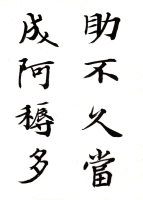 助不久當
成阿耨多